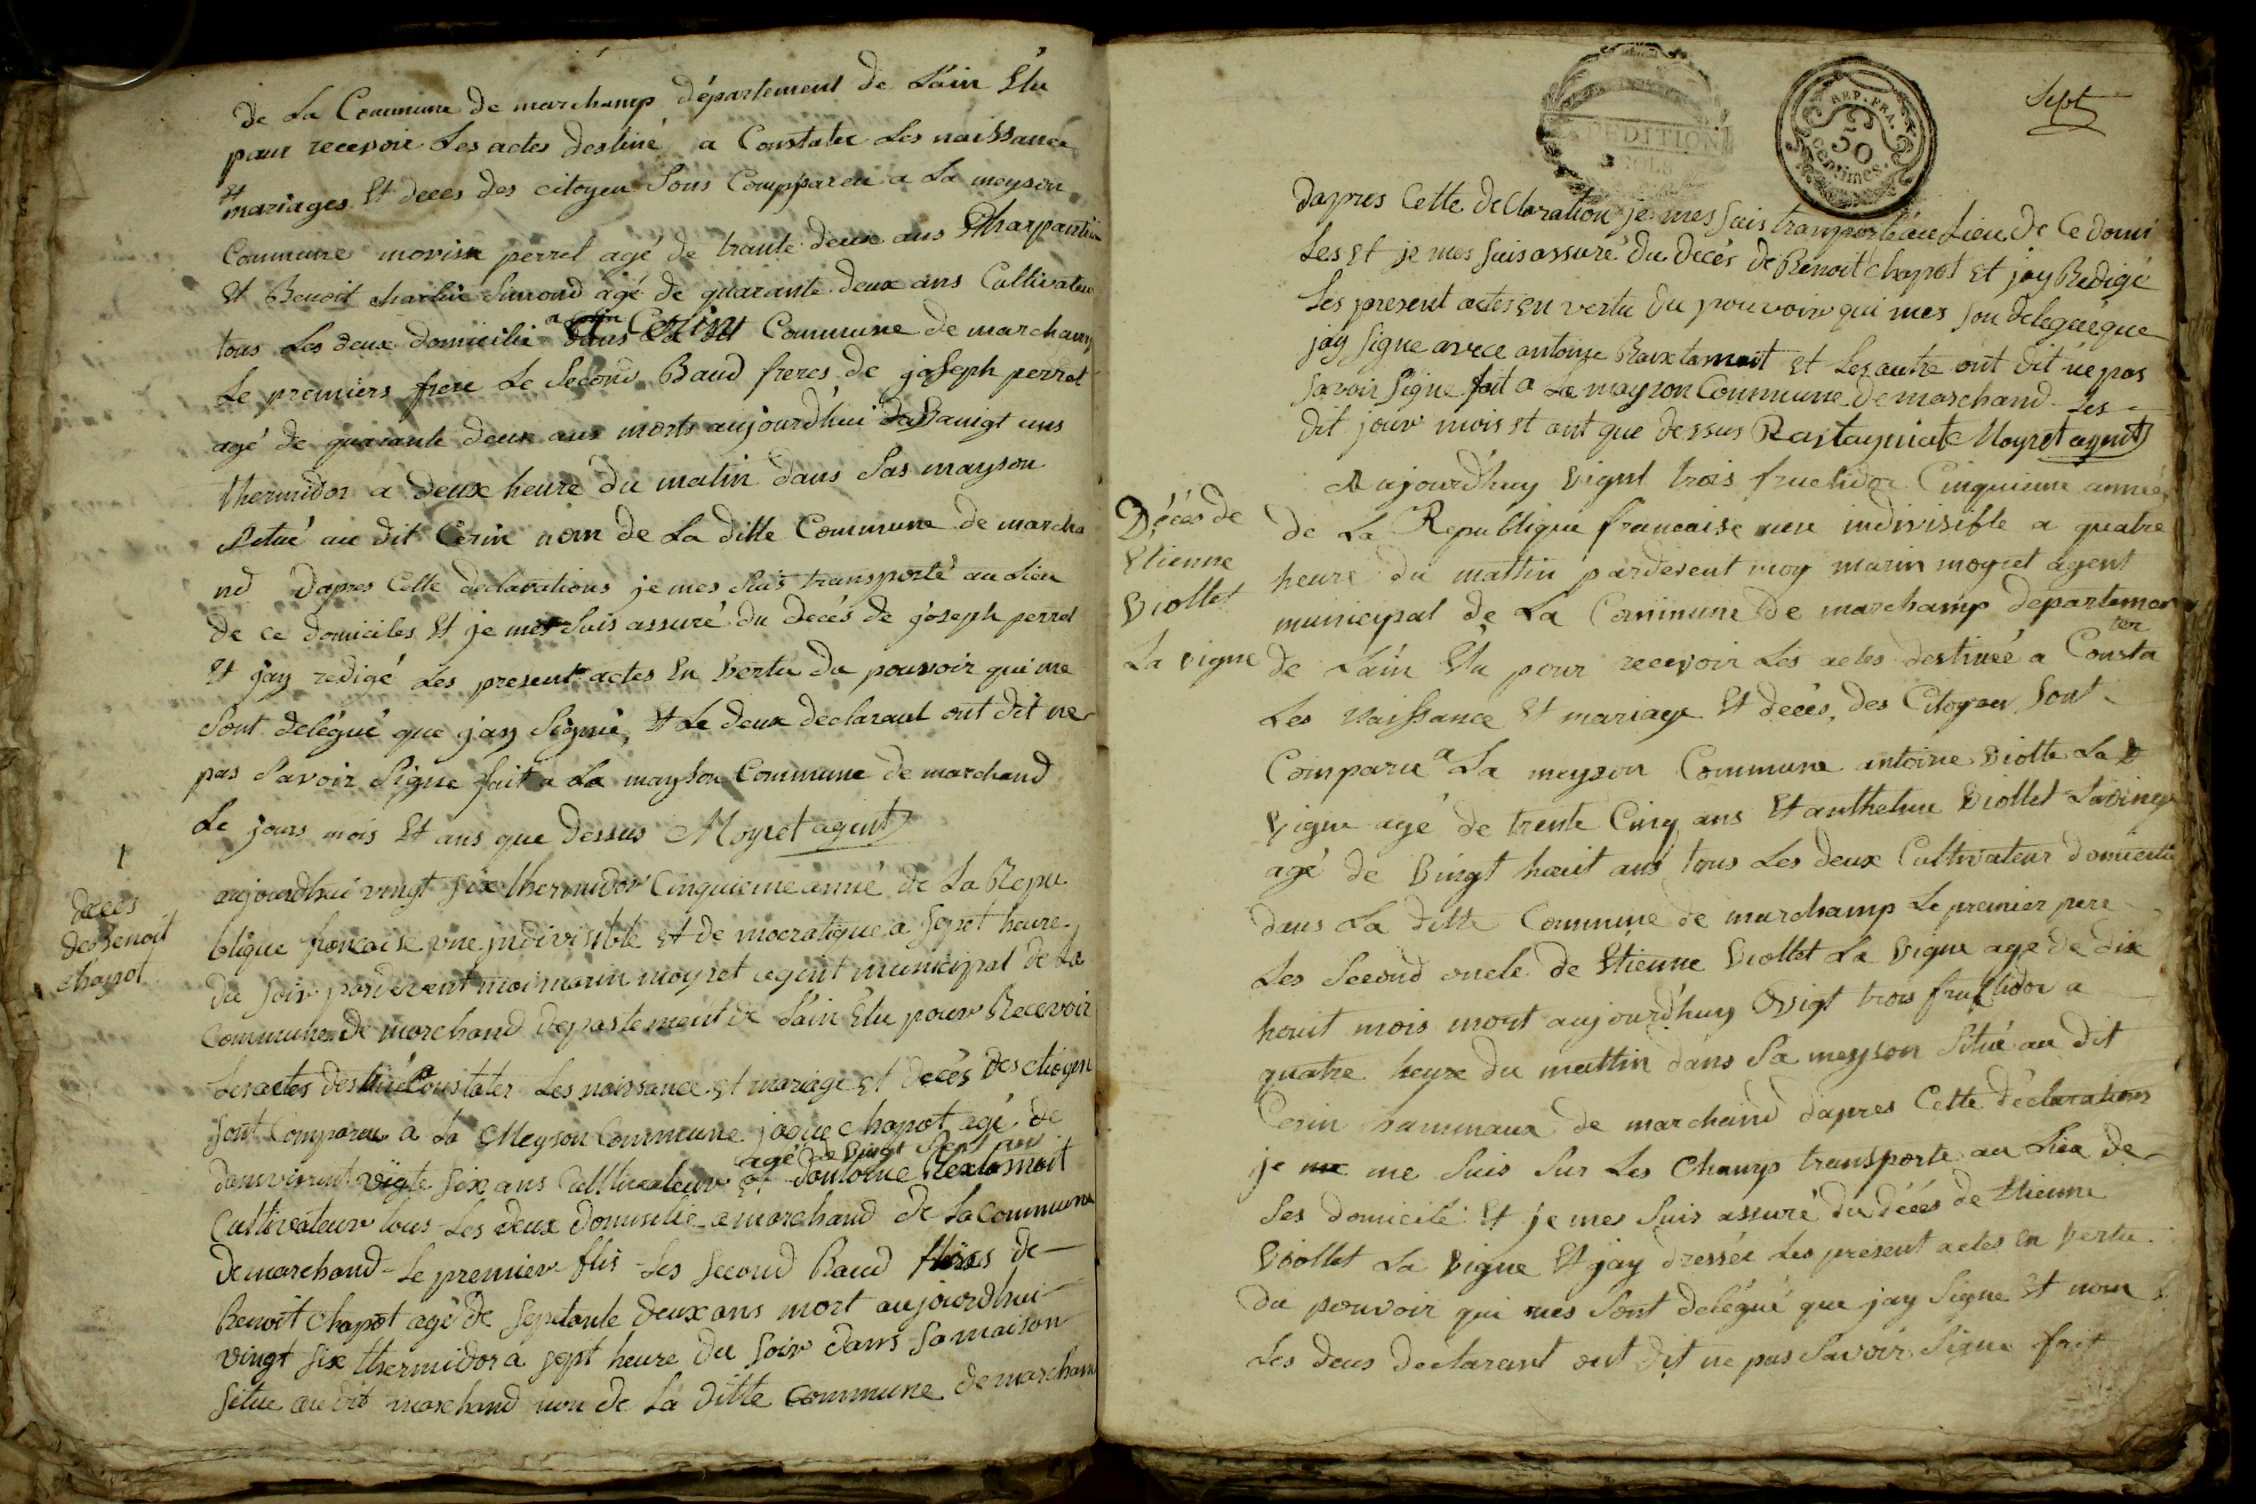 de La Commune de marchamp département de L'ain Elu
pour recevoir Les actes destiné a Constater Les naissance
Et
mariages Et deces des citoyen Sons Comppareu a La meyson
Commune morise perrel agé de trante deux ans Charpantier
Et Benoit charlin Simond agé de quarante deux ans Cultivateur
tous Les deux domicilie a Cerin Commune de marchamp
Le premiers frere Le Second Baud freres de joseph perret
agé de quarante deux ans morts aujourd'hui vanigt uns
thermidor a deux heuré du matin dans Sas mayson
Situé au dit Cerin nom de La ditte Commune de marcha
nd dapres Cette declarations je mes Suis transporté au Lieu
de ce domiciles Et je mes Suis assuré du Decés de joseph perrel
Et jay redigé Les present actes En Vertu du pouvoir qui me
Sont delégué que jay Signié, Et Le deux declarant ont dit ne
pas Savoir Signe fait a La mayson Commune de marchand
Le jours mois Et ans que dessus Moyret agent
1
deces
de benoit
chapot
aujourdhui vingt six thermidor Cinquieme anné de La Repu
blique francaise une jndivisible et de mocratique a sepet heure
du soir pardevent moi marin moyret agent municipal de La
Commune de marchand departement de L'ain Elu pour Recevoir
Les actes destiné Constater Les naissance et mariage et decés des citoyen
Sont Compareu a La Meyson Commune jaque chapot agé de
agé de vingt Sept an
danviront vigte six ans Cultivateur Et dantoine Rextamoit
Cultivateur tous Les deux Domisilie a marchand de La commune
de marchand Le premier flis Les second Baud freres de
Benoit chapot agé de septante deux ans mort aujourdhui
vingt six thermidor a sept heure du soir dans sa maison
situe au dit marchand non de La ditte commune de marchand
REP. FRA.
50
centimes.
Sept
dapres Cette declaration je mes suis transporté au Lieu de Ce domi
Les Et je mes suis assuré du decés de Benoit chapot Et jay Redigé
Les present actes en vertu du pouvoir qui mes son delegué que
jay signe avece antoine Raixtamoit Et Les autre ont dit ne pas
savoir signe fait a La mayson Commune de marchand Les
dit jour mois et ant que dessus Rastagniat Moyret agent
Décés de
Etienne
Viollet
La vigne
Aajourd'huy vignt trois fructidor Cinquieme année
de La Republique francaise une indivisible a quatre
heure du mattin pardevent moy marin moyret agent
municipal de La Commune de marchamp departemen
ter
de Lain Elu pour recevoir Les actes destineé a Consta
Les Naissance Et mariage Et decés, des Citoyen Sont
Comparu a La meyson Commune antoine Viotte La
Vigne agé de trente Cinq ans Et anthelme Viollet Lavinge
agé de Vingt huit ans tous Les deux Cultivateur domicilie
dans La ditte Commune de marchamp Le premier pere
Les Second oncle de Etienne Viollet La Vigne age de dix
houit mois mort aujourdhuy Vigt trois fructidor a
quatre heure du mattin dans Sa meyson Situé au dit
Cerin hammaux de marchand d'apres Cette déclarations
je me Suis Sur Les Champs transporte au Lieu de
Ses domicilé Et je mes Suis assuré du décés de Etienne
Viollet La Vigne Et jay dressée Les présent actes en Vertu
du pouvoir qui mes Sont delégué que jay Signe Et nom
Les deus declarant ont dit ne pas Savoir Signe fait